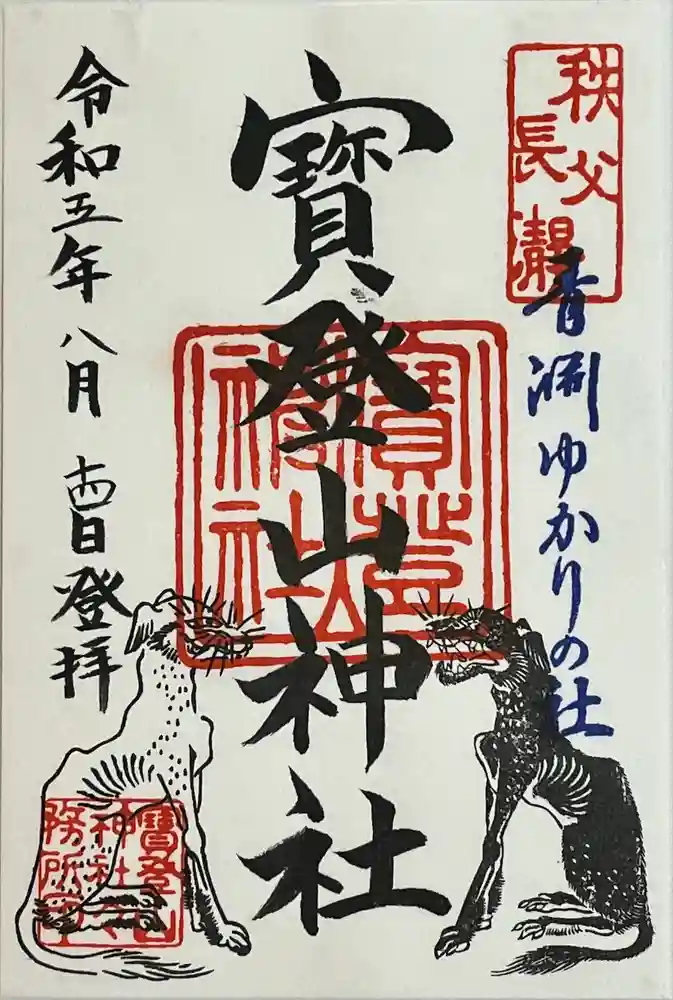 秩父
長瀞
青淵ゆかりの社
寶登山神社
寶登山
神社
令和五年八月十四日登拝
寶登山
神社
務所